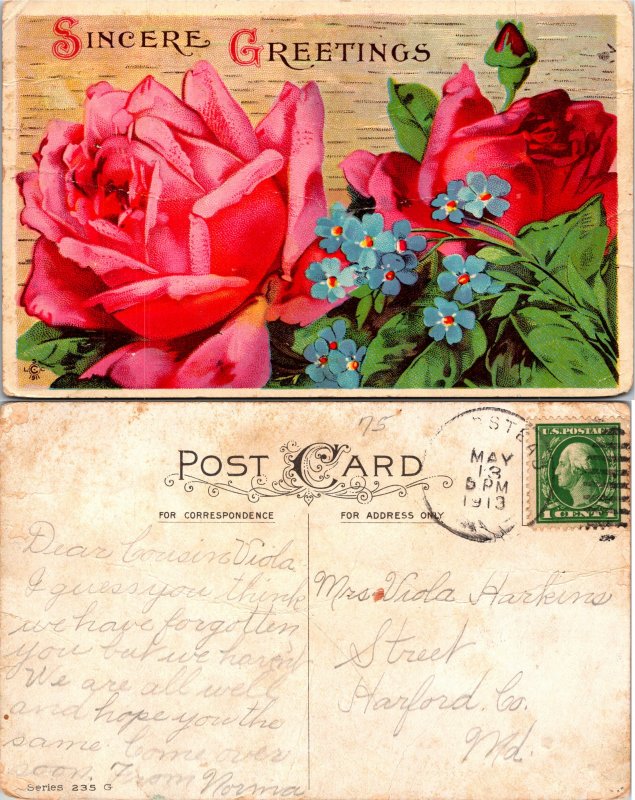 SINCERE GREETINGS
1911
75
POST CARD
FOR CORRESPONDENCE
FOR ADDRESS ONLY
MAY
13
5 PM
1913
U.S. POSTAGE
1 CENT 1
Dear Cousin Viola
I guess you think
we have forgotten
you but we haven't
We are all well
and hope you the
same Come over
soon. From Norma
Mrs Viola Harkins
Street
Harford. Co.
Md.
Series 235 G